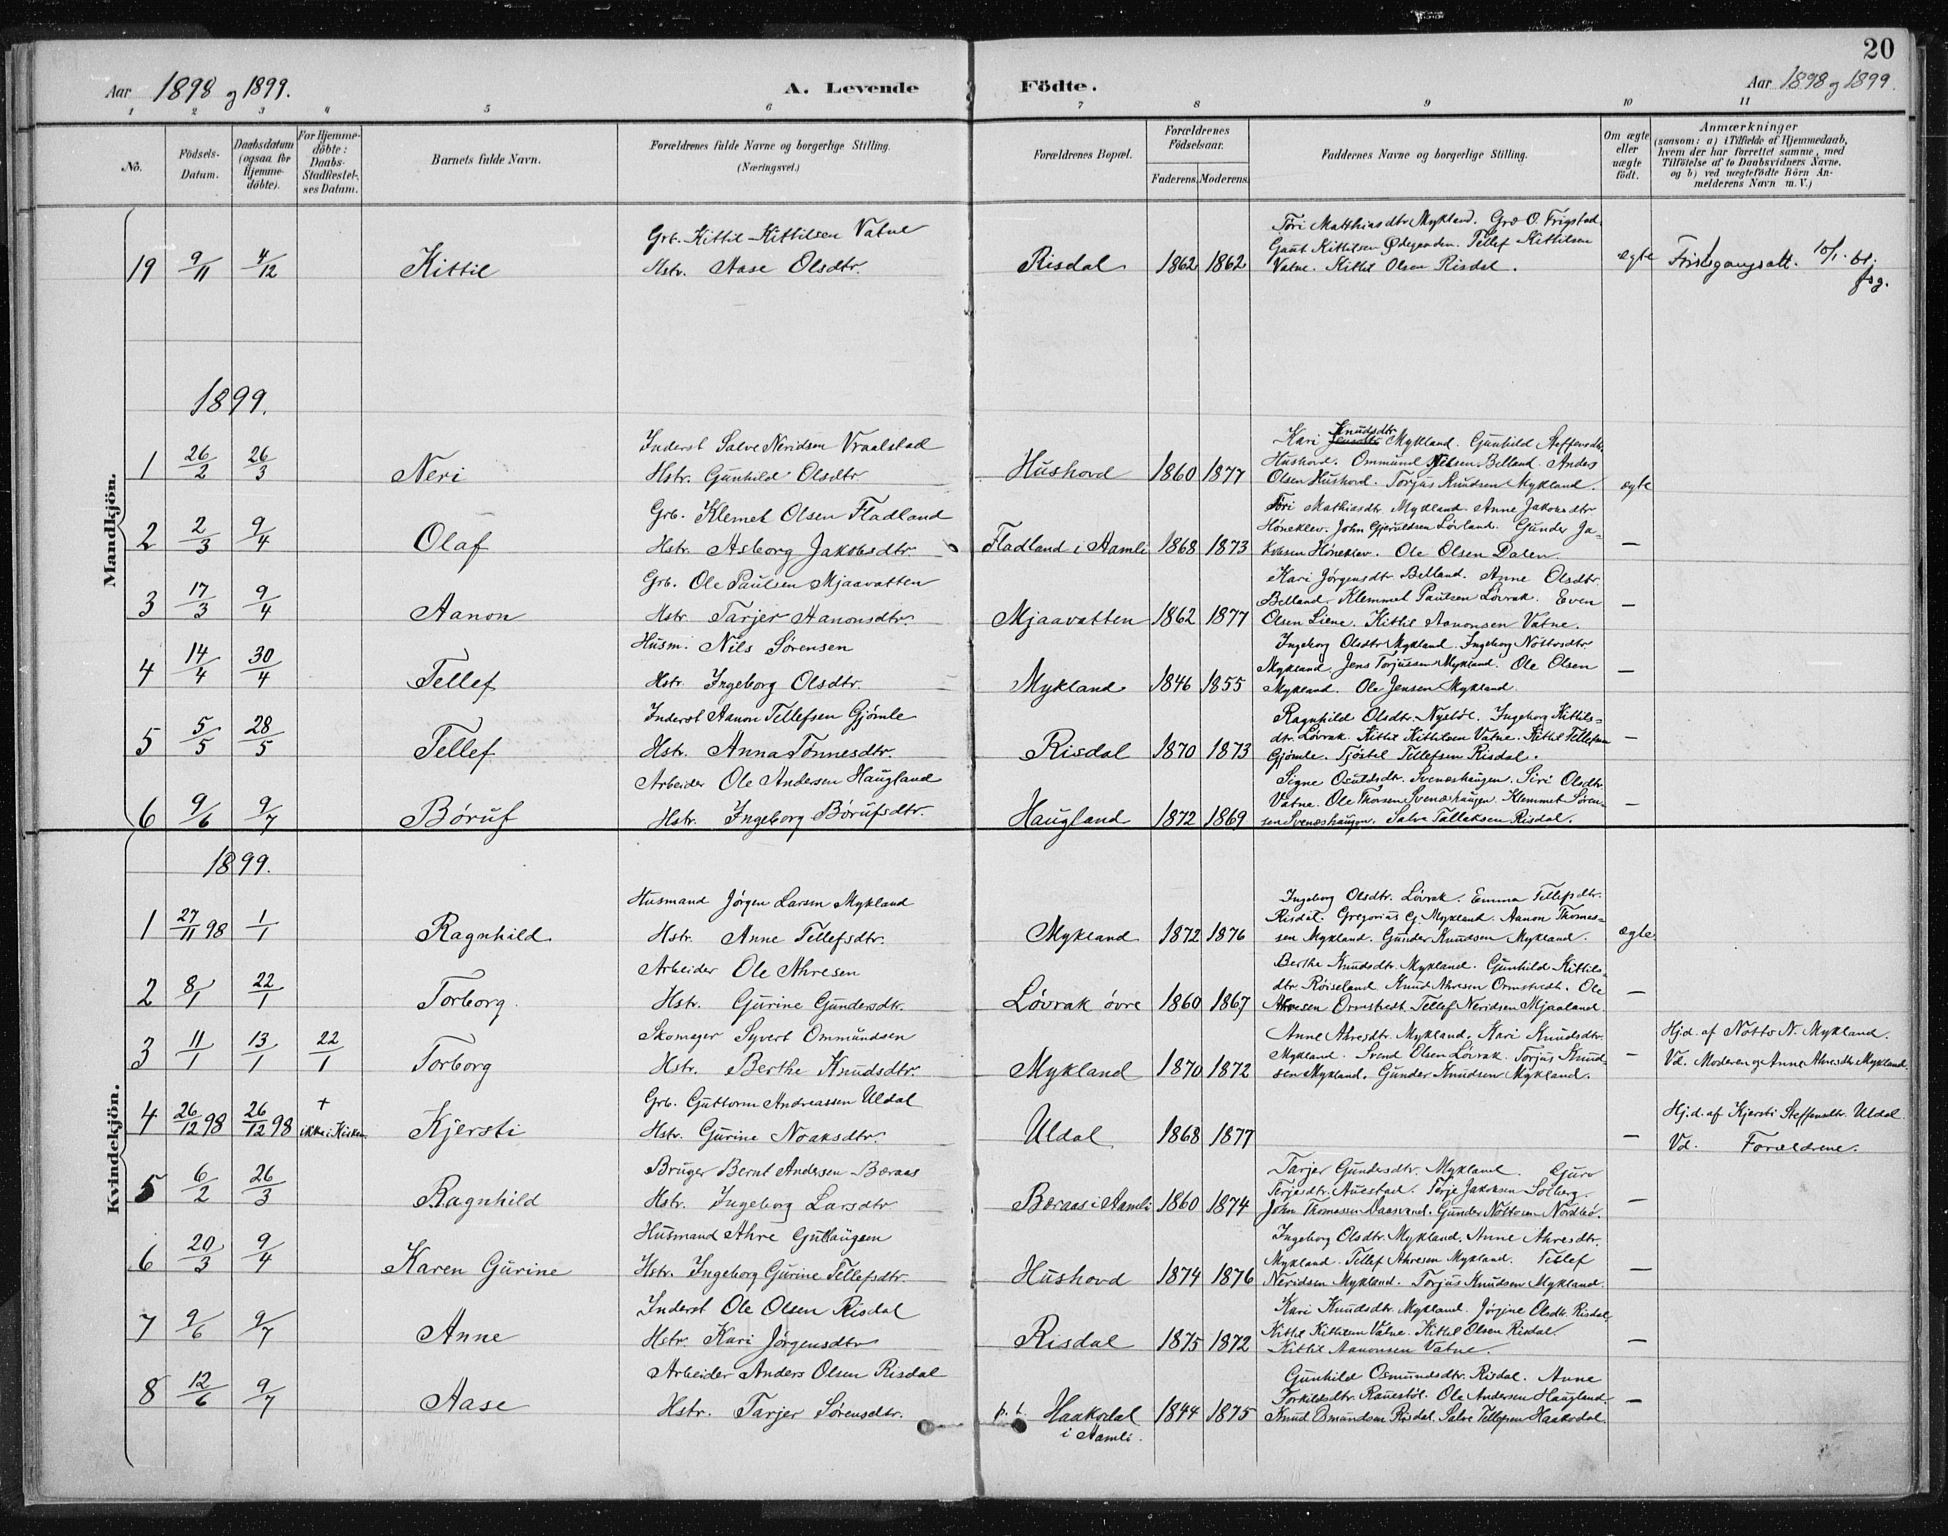 20
Aar 1898 og 1899. A. Levende Födte. Aar 1898 og 1899.
1 2 3 4 5 6 7 8 9 10 11
No.
Födsels-Datum.
Daabsdatum (ogsaa for Hjemme-döbte).
For Hjemme-döbte: Daabs-Stadfæstel-ses Datum.
Barnets fulde Navn.
Forældrenes fulde Navne og borgerlige Stilling.
(Næringsvei.)
Forældrenes Bopæl.
Forældrenes Födselsaar.
Faderens. Moderens.
Faddernes Navne og borgerlige Stilling.
Om ægte eller uægte födt.
Anmærkninger
(saasom: a) i Tilfælde af Hjemmedaab, hvem der har forrettet samme, med Tilföielse af to Daabsvidners Navne, og b) ved uægtefödte Börn An-melderens Navn m. V.)
Mandkjön.
19 9/11 4/12 Kittil
Grb. Kittil Kittilsen Vatne
Hstr. Aase Olsdtr.
Risdal 1862 1862
Töri Matthiasdtr Mykland. Gro O. Frigstad.
Gunt Kittilsen Ødegaarden. Tellef Kittilsen
Vatne. Kittil Olsen Risdal.
ægte
10/1
1899.
1 26/2 26/3 Neri
Inderst Salve Neridsen Vraalstad
Hstr. Gunhild Olsdtr
Hushovd 1860 1877
Kari Knudsdtr Mykland. Gunhild Steffensdtr.
Hushovd. Ommund Nilsen Belland. Anders
Olsen Hushovd. Torjus Knudsen Mykland.
ægte
2 2/3 9/4 Olaf
Grb. Klemet Olsen Fladland
Hstr. Asborg Jakobsdtr
Fladland i Aamli 1868 1873
Töri Mathiasdtr. Mykland. Anne Jakobsdtr
Høneklev. John Gjeruldsen Løvland. Gunder Ja-
kobsen Høneklev. Ole Olsen Dalen.
—
3 17/3 9/4 Aanon
Grb. Ole Paulsen Mjaavatten
Hstr. Tarjer Aanonsdtr.
Mjaavatten 1862 1877
Kari Jørgensdtr Belland. Anne Olsdtr.
Belland. Klemmet Paulsen Løvrak. Even
Olsen Liene. Kittil Aanonsen Vatne.
—
4 14/4 30/4 Tellef
Husm. Nils Sørensen
Hstr. Ingeborg Olsdtr.
Mykland 1846 1855
Ingeborg Olsdtr Mykland. Ingeborg Nottosdtr.
Mykland. Jens Torjussen Mykland. Ole Olsen
Mykland. Ole Jensen Mykland.
—
5 5/5 28/5 Tellef
Inderst Aanon Tellefsen Gjømle
Hstr. Anna Tønnesdtr.
Risdal 1870 1873
Ragnhild Olsdtr. Nystøl. Ingeborg Kittils-
dtr. Løvrak. Kittil Kittilsen Vatne. Kittil Tellefsen
Gjømle. Tjöstel Tellefsen Risdal.
—
6 9/6 9/7 Børuf
Arbeider Ole Andersen Haugland
Hstr. Ingeborg Børufsdtr.
Haugland 1872 1869
Signe Osuldsdtr. Svenæshaugen. Siri Olsdtr.
Vatne. Ole Thorsen Svenæshaugen. Klemmet Søren-
sen Svenæshaugen. Salve Tallaksen Risdal.
—
Kvindekjön.
1899.
1 27/11 98 1/1 Ragnhild
Husmand Jörgen Larsen Mykland
Hstr. Anne Tellefsdtr.
Mykland 1872 1876
Ingeborg Olsdtr. Løvrak. Emma Tellefsdtr.
Risdal. Gregorius G. Mykland. Aanon Thomas-
sen Mykland. Gunder Knudsen Mykland.
ægte
2 8/1 22/1 Torborg.
Arbeider Ole Ahresen
Hstr. Gurine Gundersdtr.
Løvrak övre 1860 1867
Berthe Knudsdtr. Mykland. Gunhild Kittils-
dtr. Röiseland. Knud Ahresen Ormstedt. Ole
Ahresen Ormstedt. Tellef Neridsen Mjaaland
—
3 11/1 13/1 22/1 Torborg
Skomager Syvert Ommundsen
Hstr. Berthe Knudsdtr.
Mykland 1870 1872
Anne Ahresdtr. Mykland. Kari Knudsdtr.
Mykland. Svend Olsen Løvrak. Torjus Knud-
sen Mykland. Gunder Knudsen Mykland.
—
Hjd. af Notto N. Mykland.
Vd. Moderen og Anne Ahresdtr Mykland.
4 26/12 98 26/12 98 + ikke i Kirken Kjersti
Grb. Guttorm Andreassen Uldal
Hstr. Gurine Noaksdtr.
Uldal 1868 1877
—
Hj.d. af Kjersti Steffensdtr. Uldal
Vd. Forældrene.
5 6/2 26/3 Ragnhild
Bruger Bernt Andersen Bæraas
Hstr. Ingeborg Larsdtr
Bæraas i Aamli 1860 1874
Tarjer Gundersdtr. Mykland. Guro
Terjesdtr. Auestad. Terje Jakobsen Solberg.
John Thomassen Aasvand. Gunder Nottosen Nordbø.
—
6 20/3 9/4 Karen Gurine
Husmand Ahre Gutlaugsen
Hstr. Ingeborg Gurine Tellefsdtr.
Hushovd 1874 1876
Ingeborg Olsdtr. Mykland. Anne Ahresdtr.
Mykland. Tellef Ahresen Mykland. Tellef
Neridsen Mykland. Torjus Knudsen Mykland.
—
7 9/6 9/7 Anne
Inderst Ole Olsen Risdal
Hstr. Kari Jørgensdtr
Risdal 1875 1872
Kari Knudsdtr. Mykland. Jörgine Olsdtr. Risdal.
Kittil Kittilsen Vatne. Kittil Olsen Risdal.
Kittil Aanonsen Vatne.
—
8 12/6 9/7 Aase
Arbeider Anders Olsen Risdal
Hstr. Tarjer Sørensdtr.
p. t. Haakodal
i Aamli.
1844 1875
Gunhild Osmundsdtr. Risdal. Anne
Torkildsdtr. Rauestöl. Ole Andersen Haugland.
Knud Osmundsen Risdal. Salve Tellefsen Haakodal.
—